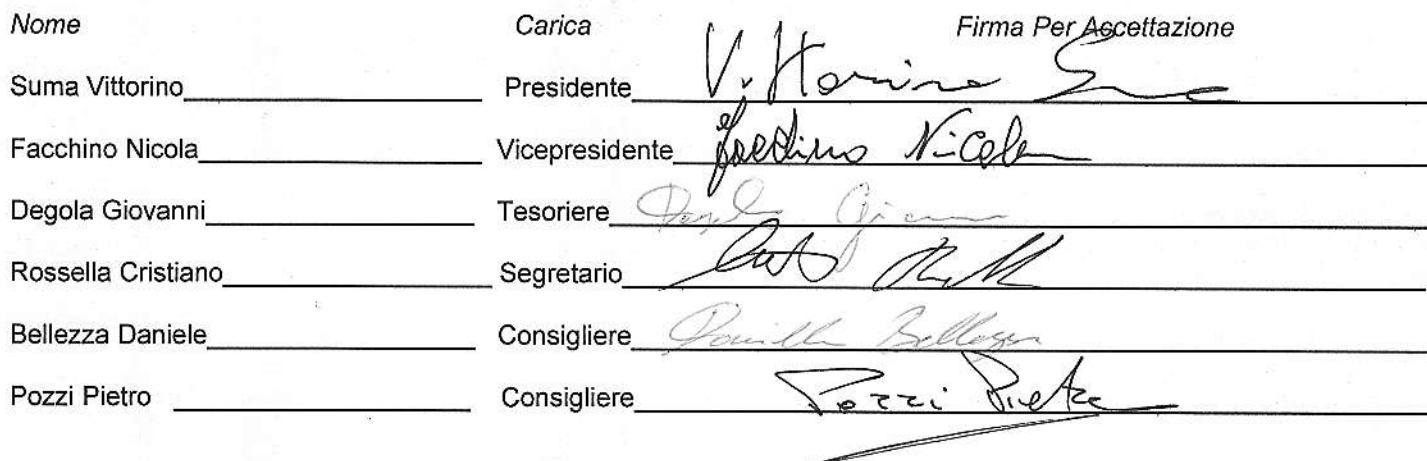 Nome Carica Firma Per Accettazione
Suma Vittorino Presidente Vittorino Suma
Facchino Nicola Vicepresidente Facchino Nicola
Degola Giovanni Tesoriere
Rossella Cristiano Segretario
Bellezza Daniele Consigliere Bellezza
Pozzi Pietro Consigliere Pozzi Pietro